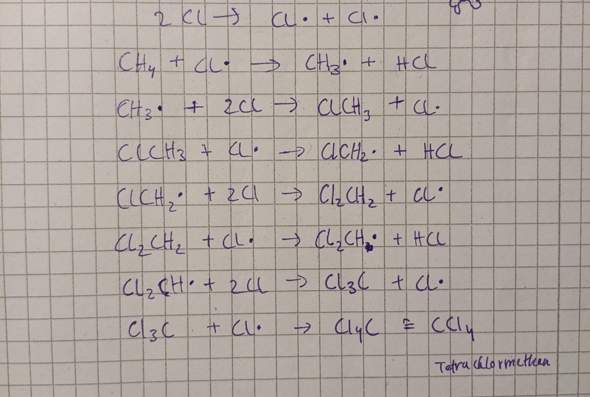 2 Cl → Cl• + Cl•
CH₄ + Cl• → CH₃• + HCl
CH₃• + 2Cl → ClCH₃ + Cl•
ClCH₃ + Cl• → ClCH₂• + HCl
ClCH₂• + 2Cl → Cl₂CH₂ + Cl•
Cl₂CH₂ + Cl• → Cl₂CH• + HCl
Cl₂CH• + 2Cl → Cl₃C + Cl•
Cl₃C + Cl• → Cl₄C ≡ CCl₄
Tetrachlormethan